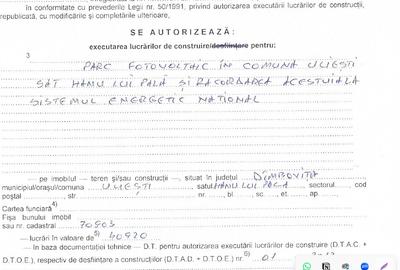 în conformitate cu prevederile Legii nr. 50/1991, privind autorizarea executării lucrărilor de construcții,
republicată, cu modificările și completările ulterioare,
SE AUTORIZEAZĂ:
executarea lucrărilor de construire/desființare pentru:
3
PARC FOTOVOLTAIC ÎN COMUNA ULIEȘTI
SAT HANU LUI PALĂ ȘI RACORDAREA ACESTUIA LA
SISTEMUL ENERGETIC NATIONAL
– pe imobilul – teren și/sau construcții –, situat în județul DÎMBOVIȚA
municipiul/orașul/comuna ULIEȘTI satul HANU LUI PALA sectorul cod
poștal , str. nr. , bl. , sc. , et. , ap.
Cartea funciară 4)
Fișa bunului imobil
sau nr. cadastral 70903
– lucrări în valoare de 5)
– În baza documentației tehnice – D.T. pentru autorizarea executării lucrărilor de construire (D.T.A.C. +
D.T.O.E.), respectiv de desființare a construcțiilor (D.T.A.D. + D.T.O.E.) nr. 6) 01